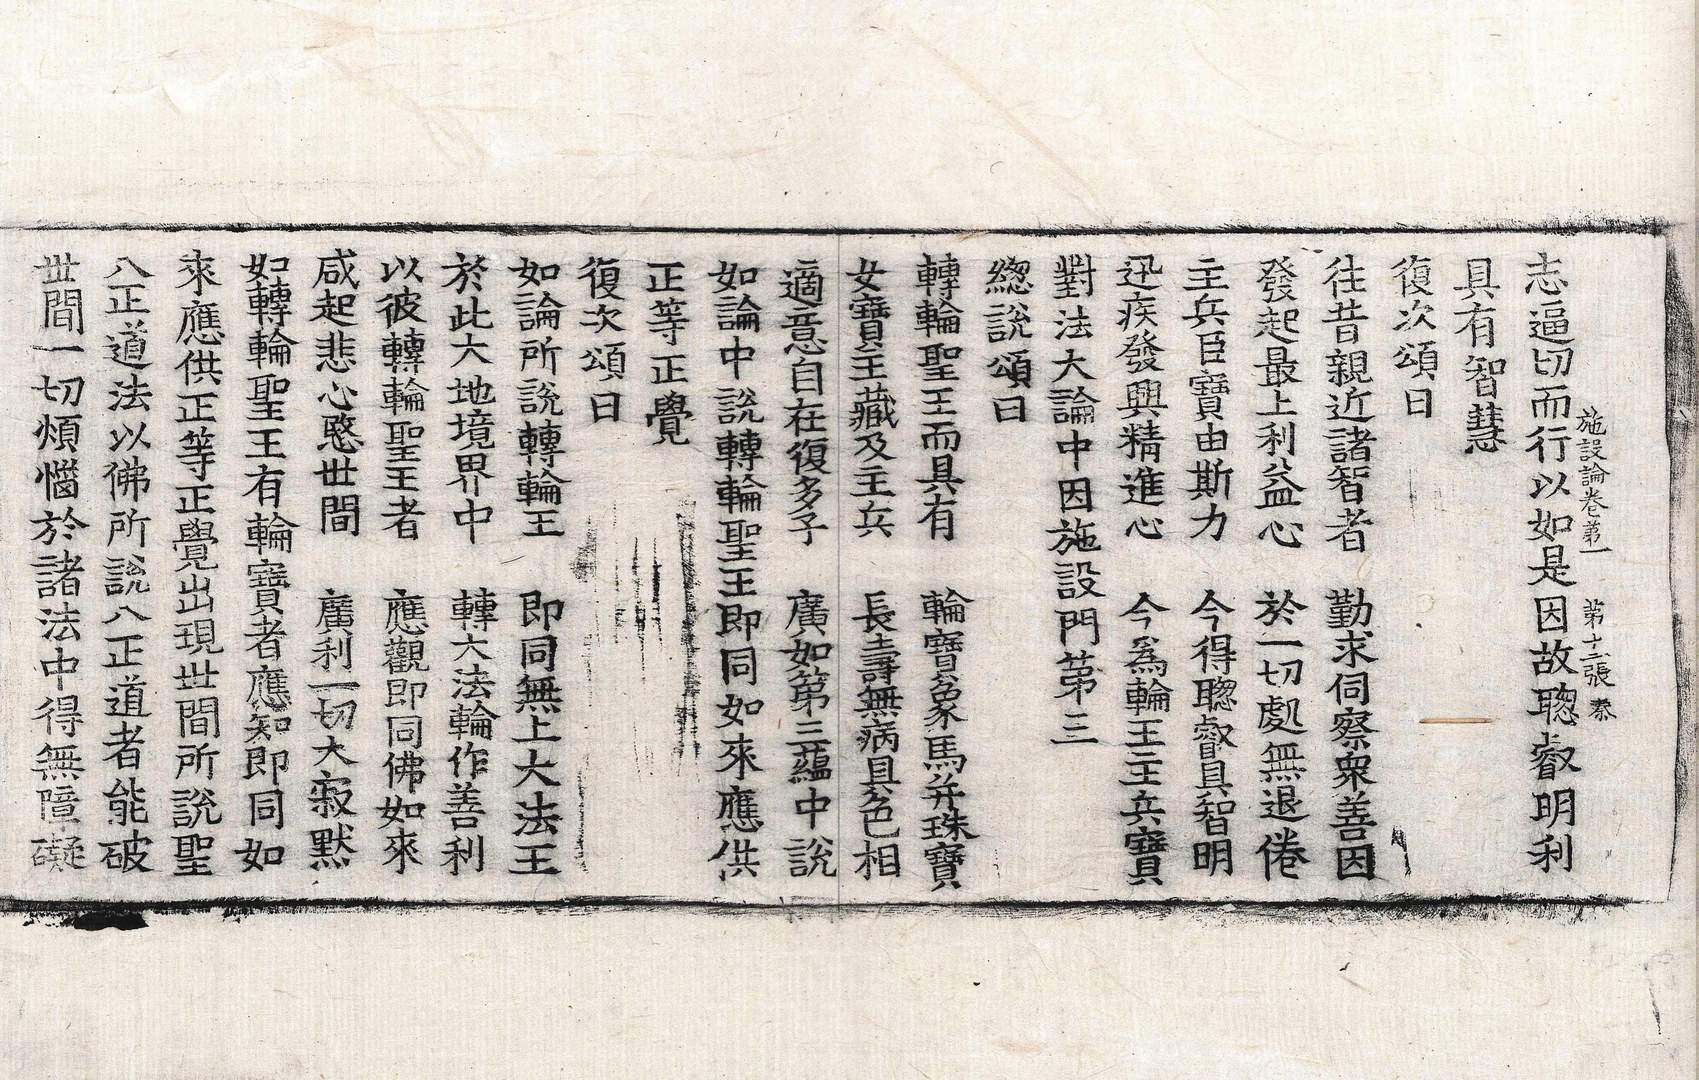 施設論卷第一　第十二張　㤗
志逼切而行以如是因故聦叡明利
具有智慧
復次頌曰
往昔親近諸智者　勤求伺察衆善因
發起最上利益心　於一切處無退倦
主兵臣寶由斯力　今得聦叡具智明
迅疾發興精進心　今為輪王主兵寶
對法大論中因施設門第三
緫說頌曰
轉輪聖王而具有　輪寶象馬并珠寶
女寶主藏及主兵　長壽無病具色相
適意自在復多子　廣如第三蘊中說
如論中說轉輪聖王即同如來應供
正等正覺
復次頌曰
如論所說轉輪王　即同無上大法王
於此大地境界中　轉大法輪作善利
以彼轉輪聖王者　應觀即同佛如來
咸起悲心愍世間　廣利一切大寂默
如轉輪聖王有輪寶者應知即同如
來應供正等正覺出現世間所說聖
八正道法以佛所說八正道者能破
世間一切煩惱於諸法中得無障礙